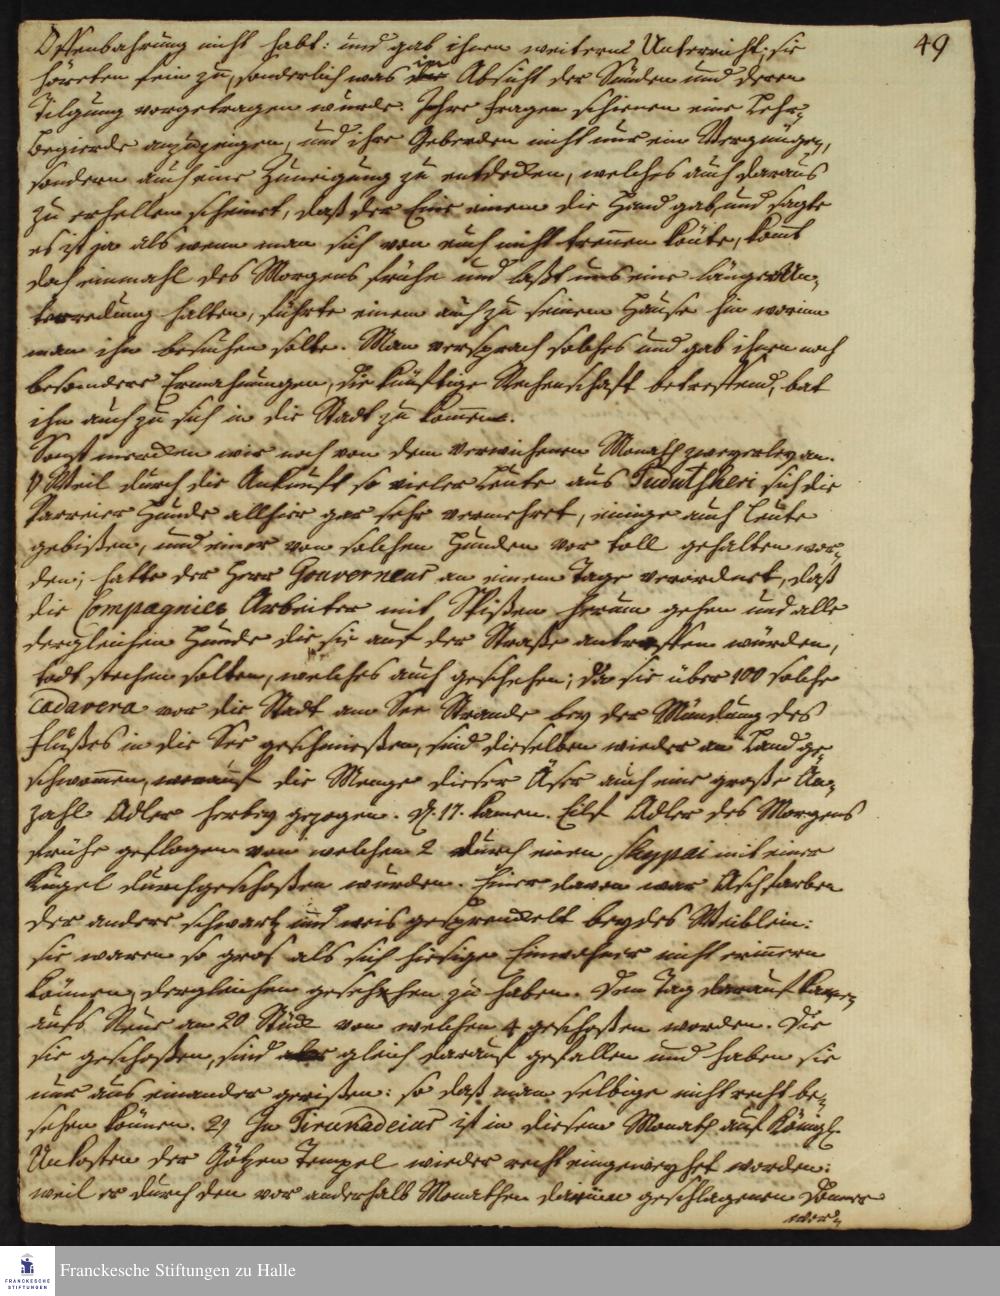 49
Offenbahrung nicht habt: und gab ihnen weitern Unterricht; sie
höreten fein zu, sonderlich was in Absicht der Sünden und deren
Tilgung vorgetragen wurde. Ihre Fragen schienen eine Lehr-
Begierde anzuzeigen, und ihre Geberden nicht nur ein Vergnügen,
sondern auch eine Zuneigung zu entdecken, welches auch daraus
zu erhellen scheinet, daß der Eine einem die Hand gab, und sagte
es ist ja als wenn man sich von euch nicht trennen könte, komt
doch einmahl des Morgens frühe und laßt uns eine längere Un-
terredung halten, führte einem auch zu seinem Hause hin worinn
man ihn besuchen solte. Man versprach solches und gab ihnen noch
besondere Ermahnungen, die künftige Rechenschaft betreffend, bat
ihn auch zu sich in die Stadt zu kommen.
Sonst merken wir noch von dem verwichenen Monath zweyerley an.
1) Weil durch die Ankunft so vieler Leute aus Pudutscheri sich die
Parreier Hunde allhier gar sehr vermehret, einige auch Leute
gebißen, und einer von solchen Hunden vor toll gehalten wor-
den; hatte der Herr Gouverneur an einem Tage verordnet, daß
die Compagnies Arbeiter mit Spißen herum gehen und alle
dergleichen Hunde die sie auf der Straße antreffen würden,
todt stechen solten, welches auch geschehen; da sie über 100 solche
Cadavera vor die Stadt am See Strande bey der Mündung des
Flußes in die See geschmießen, sind dieselben wieder an Land ge-
schwommen, worauf die Menge dieser Äser auch eine große An-
zahl Adler herbey gezogen. D. 17. kamen Eilf Adler des Morgens
frühe geflogen von welchen 2 durch einen Shippai mit einer
Kugel durchgeschoßen wurden. Einer davon war Aschfarben
der andere schwartz und weis gesprenckelt beydes Weiblein:
sie waren so gros als sich hiesige Einwohner nicht erinnern
können, dergleichen gesehen zu haben. Den Tag darauf kamen
aufs Neue an 20 Stück von welchen 4 geschoßen worden. Die
sie geschoßen, sind gleich darauf gefallen und haben sie
nur aus einander gerißen: so daß man selbige nicht recht be-
sehen können. 2) In Tirukadeiur ist in diesem Monath auf Königl.
Unkosten der Götzen Tempel wieder recht eingeweyhet worden:
weil er durch den vor anderhalb Monathen darinn geschlagenen Donner
wer-
Franckesche Stiftungen zu Halle
FRANCKESCHE
STIFTUNGEN